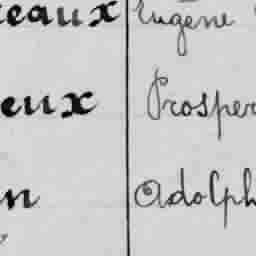 eaux Eugène
eux Prosper
n Adolph